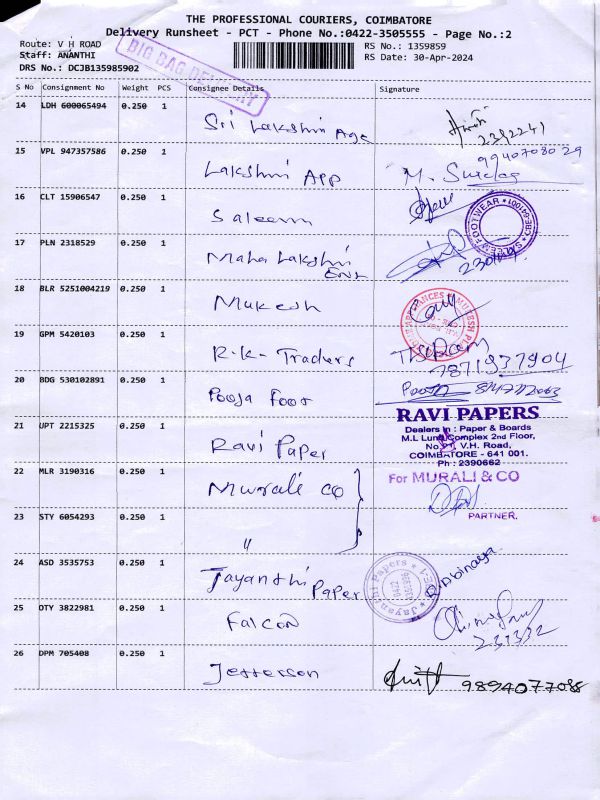 THE PROFESSIONAL COURIERS, COIMBATORE
Delivery Runsheet - PCT - Phone No.:0422-3505555 - Page No.:2
Route: V H ROAD
Staff: ANANTHI
DRS No.: DCJB135985902
RS No.: 1359859
RS Date: 30-Apr-2024
BIG BAG DELIVERY
S No Consignment No Weight PCS Consignee Details Signature
14 LDH 600065494 0.250 1 Sri Lakshmi Age
2392241
15 VPL 947357586 0.250 1 Lakshmi App
9940708029
M.
16 CLT 15906547 0.250 1 Saleem
FOOTWEAR
17 PLN 2318529 0.250 1 Maha Lakshmi
Ent
18 BLR 5251004219 0.250 1 Mukesh
19 GPM 5420103 0.250 1 R.K. Traders
7871937904
20 BDG 530102891 0.250 1 Pooja Foot
Pooja
21 UPT 2215325 0.250 1 Ravi Paper
RAVI PAPERS
Dealers in : Paper & Boards
M.L Luna Complex 2nd Floor,
V.H. Road,
COIMBATORE - 641 001.
Ph : 2390662
22 MLR 3190316 0.250 1 Murali CO
For MURALI & CO
PARTNER.
23 STY 6054293 0.250 1 "
24 ASD 3535753 0.250 1 Jayanthi Paper
Jayanthi Papers
25 DTY 3822981 0.250 1 Falcon
231332
26 DPM 705408 0.250 1 Jefferson
9894077088